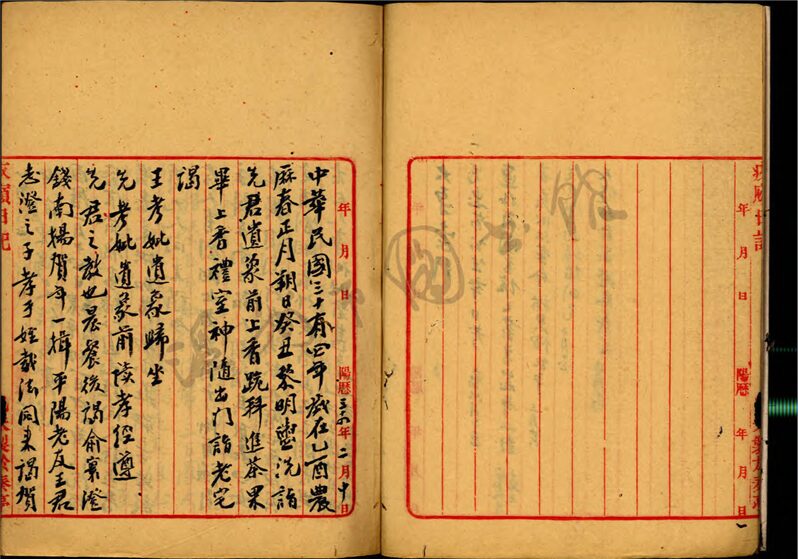 年 月 日 陽曆 年 月 日
年 月 日 陽曆三四年二月十日
中華民國三十有四年歲在乙酉農
厤春正月朔日癸丑黎明盥洗詣
先君遺象前上香跪拜進茶果
畢上香禮室神隨出門詣老宅
謁
王考妣遺象歸坐
先考妣遺象前讀孝經遵
先君之教也晨餐後謁俞寰澄
錢南揚賀年一揖平陽老友王君
志澄之子孝于姪載法同來謁賀
日記